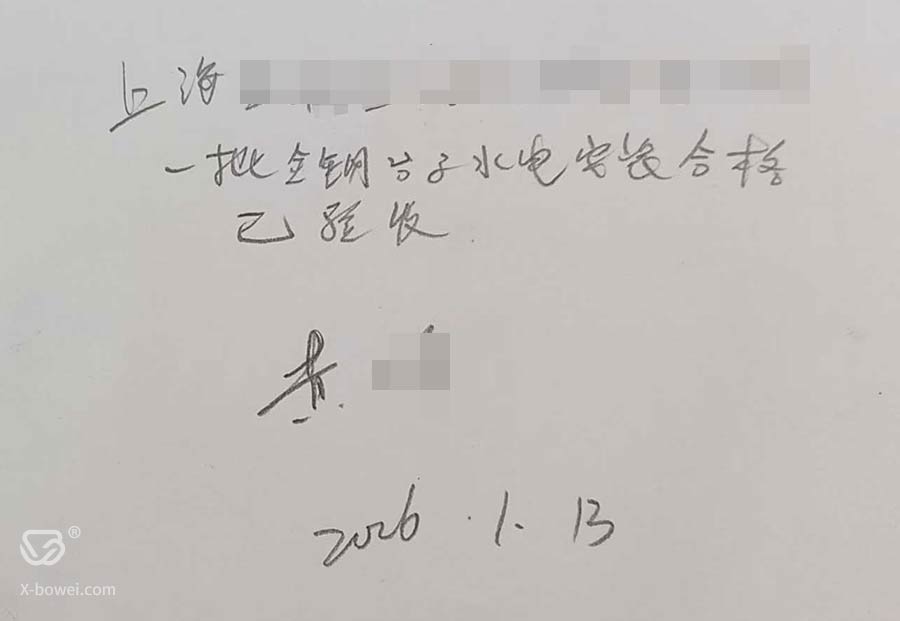 上海
一批全钢台子水电安装合格
已验收
黄
2026.1.13
®
X-bowei.com